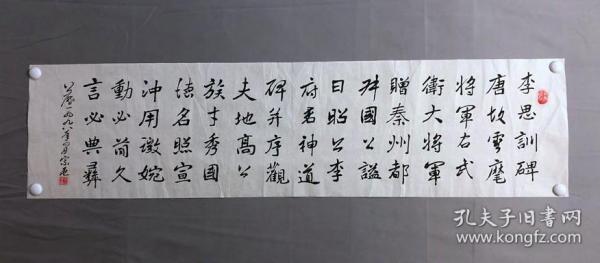 李思訓碑
唐故雲麾
將軍右武
衛大將軍
贈秦州都
督國公謚
日昭公李
府君神道
碑并序觀
夫地高公
族才秀國
華名照宣
沖用微婉
動必簡久
言必典彝
公元一九九八年
孔夫子旧书网
www.kongfz.com